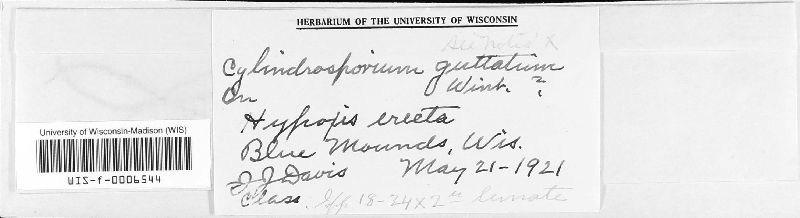 HERBARIUM OF THE UNIVERSITY OF WISCONSIN
See notes X
Cylindrosporium guttatum
Wint. ?
On
Hypoxis erecta
Blue Mounds, Wis.
J J Davis May 21-1921
Class. 18-24 x 2 lunate
University of Wisconsin-Madison (WIS)
WIS-f-0006544